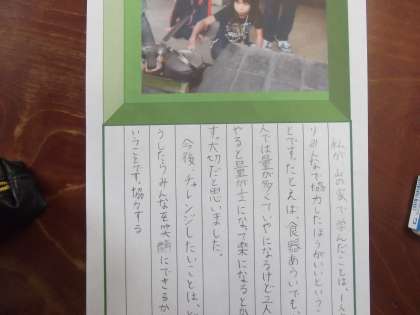 私が山の家で学んだことは、一人
りみんなで協力したほうがいいという
とです。たとえば、食器あらいでも、
人では量が多くていやになるけど二人
やると量が士になって楽になるとか
す。大切だと思いました。
今後、チャレンジしたいことは、ど
うしたらみんなを笑顔にできるか
いうことです。協力する